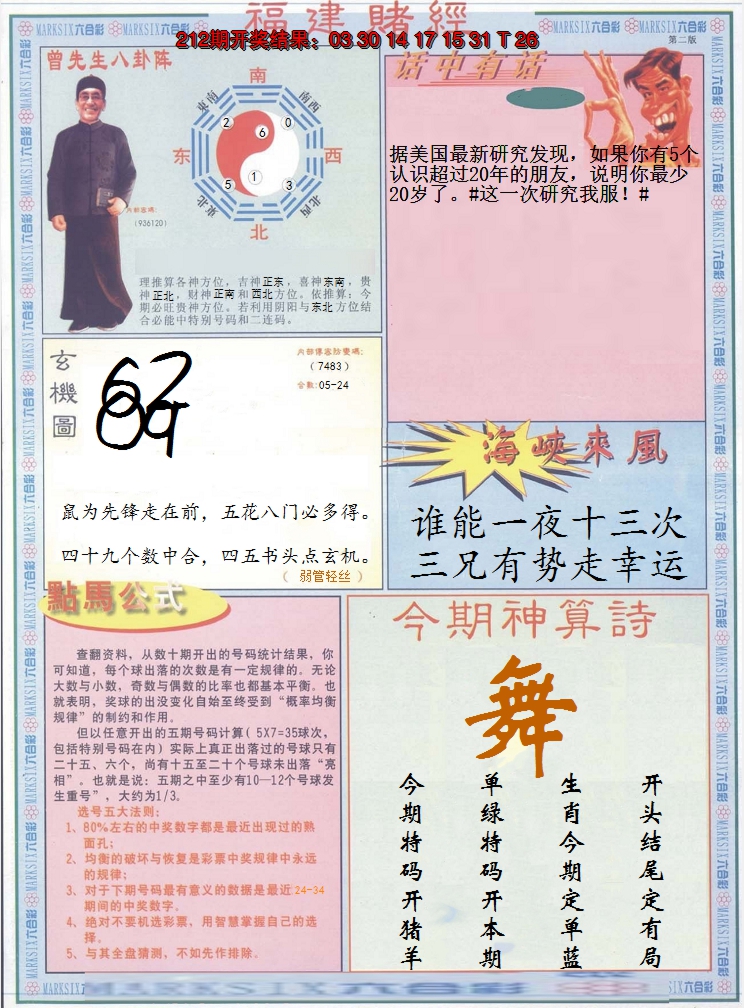 福建賭經
212期开奖结果：03 30 14 17 15 31 T 26
第二版
MARKSIX六合彩
曾先生八卦阵
南
東南
南西
2
6
0
东
西
5
1
3
東北
北西
北
内部密碼：
（936120）
理推算各神方位，吉神正东，喜神东南，贵
神正北，财神正南和西北方位。依推算：今
期必旺贵神方位。若利用阴阳与东北方位结
合必能中特别号码和二连码。
话中有话
据美国最新研究发现，如果你有5个
认识超过20年的朋友，说明你最少
20岁了。#这一次研究我服！#
玄機圖
（7483）
合數：05-24
鼠为先锋走在前，五花八门必多得。
四十九个数中合，四五书头点玄机。
（ 弱管轻丝 ）
海峽來風
谁能一夜十三次
三兄有势走幸运
點馬公式
查翻资料，从数十期开出的号码统计结果，你
可知道，每个球出落的次数是有一定规律的。无论
大数与小数，奇数与偶数的比率也都基本平衡。也
就表明，奖球的出没变化自始至终受到“概率均衡
规律”的制约和作用。
但以任意开出的五期号码计算（5X7=35球次，
包括特别号码在内）实际上真正出落过的号球只有
二十五、六个，尚有十五至二十个号球未出落“亮
相”。也就是说：五期之中至少有10—12个号球发
生重号”，大约为1/3。
选号五大法则：
1、80%左右的中奖数字都是最近出现过的熟
面孔；
2、均衡的破坏与恢复是彩票中奖规律中永远
的规律；
3、对于下期号码最有意义的数据是最近24-34
期间的中奖数字。
4、绝对不要机选彩票，用智慧掌握自己的选
择。
5、与其全盘猜测，不如先作排除。
今期神算詩
舞
今期特码开猪羊
单绿特码开本期
生肖今期定单蓝
开头结尾定有局